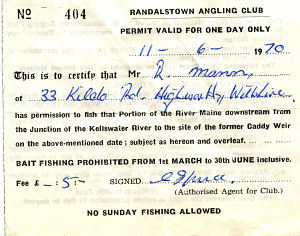 No 404
RANDALSTOWN ANGLING CLUB
PERMIT VALID FOR ONE DAY ONLY
11 - 6 - 1970
This is to certify that Mr R. Mann,
of 33 Kildo Rd. Highworth, Wiltshire
has permission to fish that Portion of the River Maine downstream from
the Junction of the Kellswater River to the site of the former Caddy Weir
on the above-mentioned date ; subject as hereon and overleaf.
BAIT FISHING PROHIBITED FROM 1st MARCH to 30th JUNE inclusive.
Fee £ - : 5: - SIGNED
(Authorised Agent for Club.)
NO SUNDAY FISHING ALLOWED